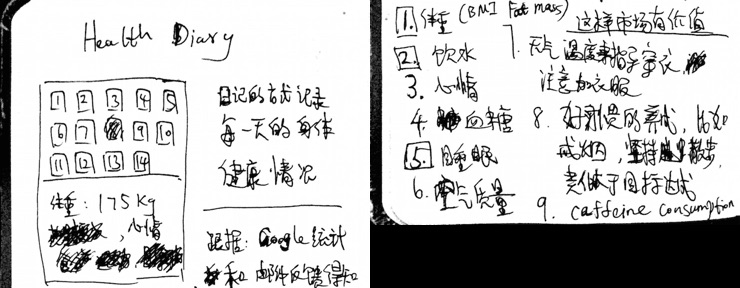 Health Diary
1 2 3 4 5
6 7 9 10
11 12 13 14
体重: 175 Kg
, 心情
日记的方式记录
每一天的身体
健康情况
跟据: Google 统计
和 邮件反馈得知
1. 体重 (BMI Fat mass)
这样市场有价值
2. 饮水
3. 心情
4. 血糖
5. 睡眠
6. 空气质量
7. 天气 温度来指导穿衣
注意加衣服
8. 好习惯的养成, 比如
戒烟, 坚持散步,
类似于目标达成
9. caffeine consumption